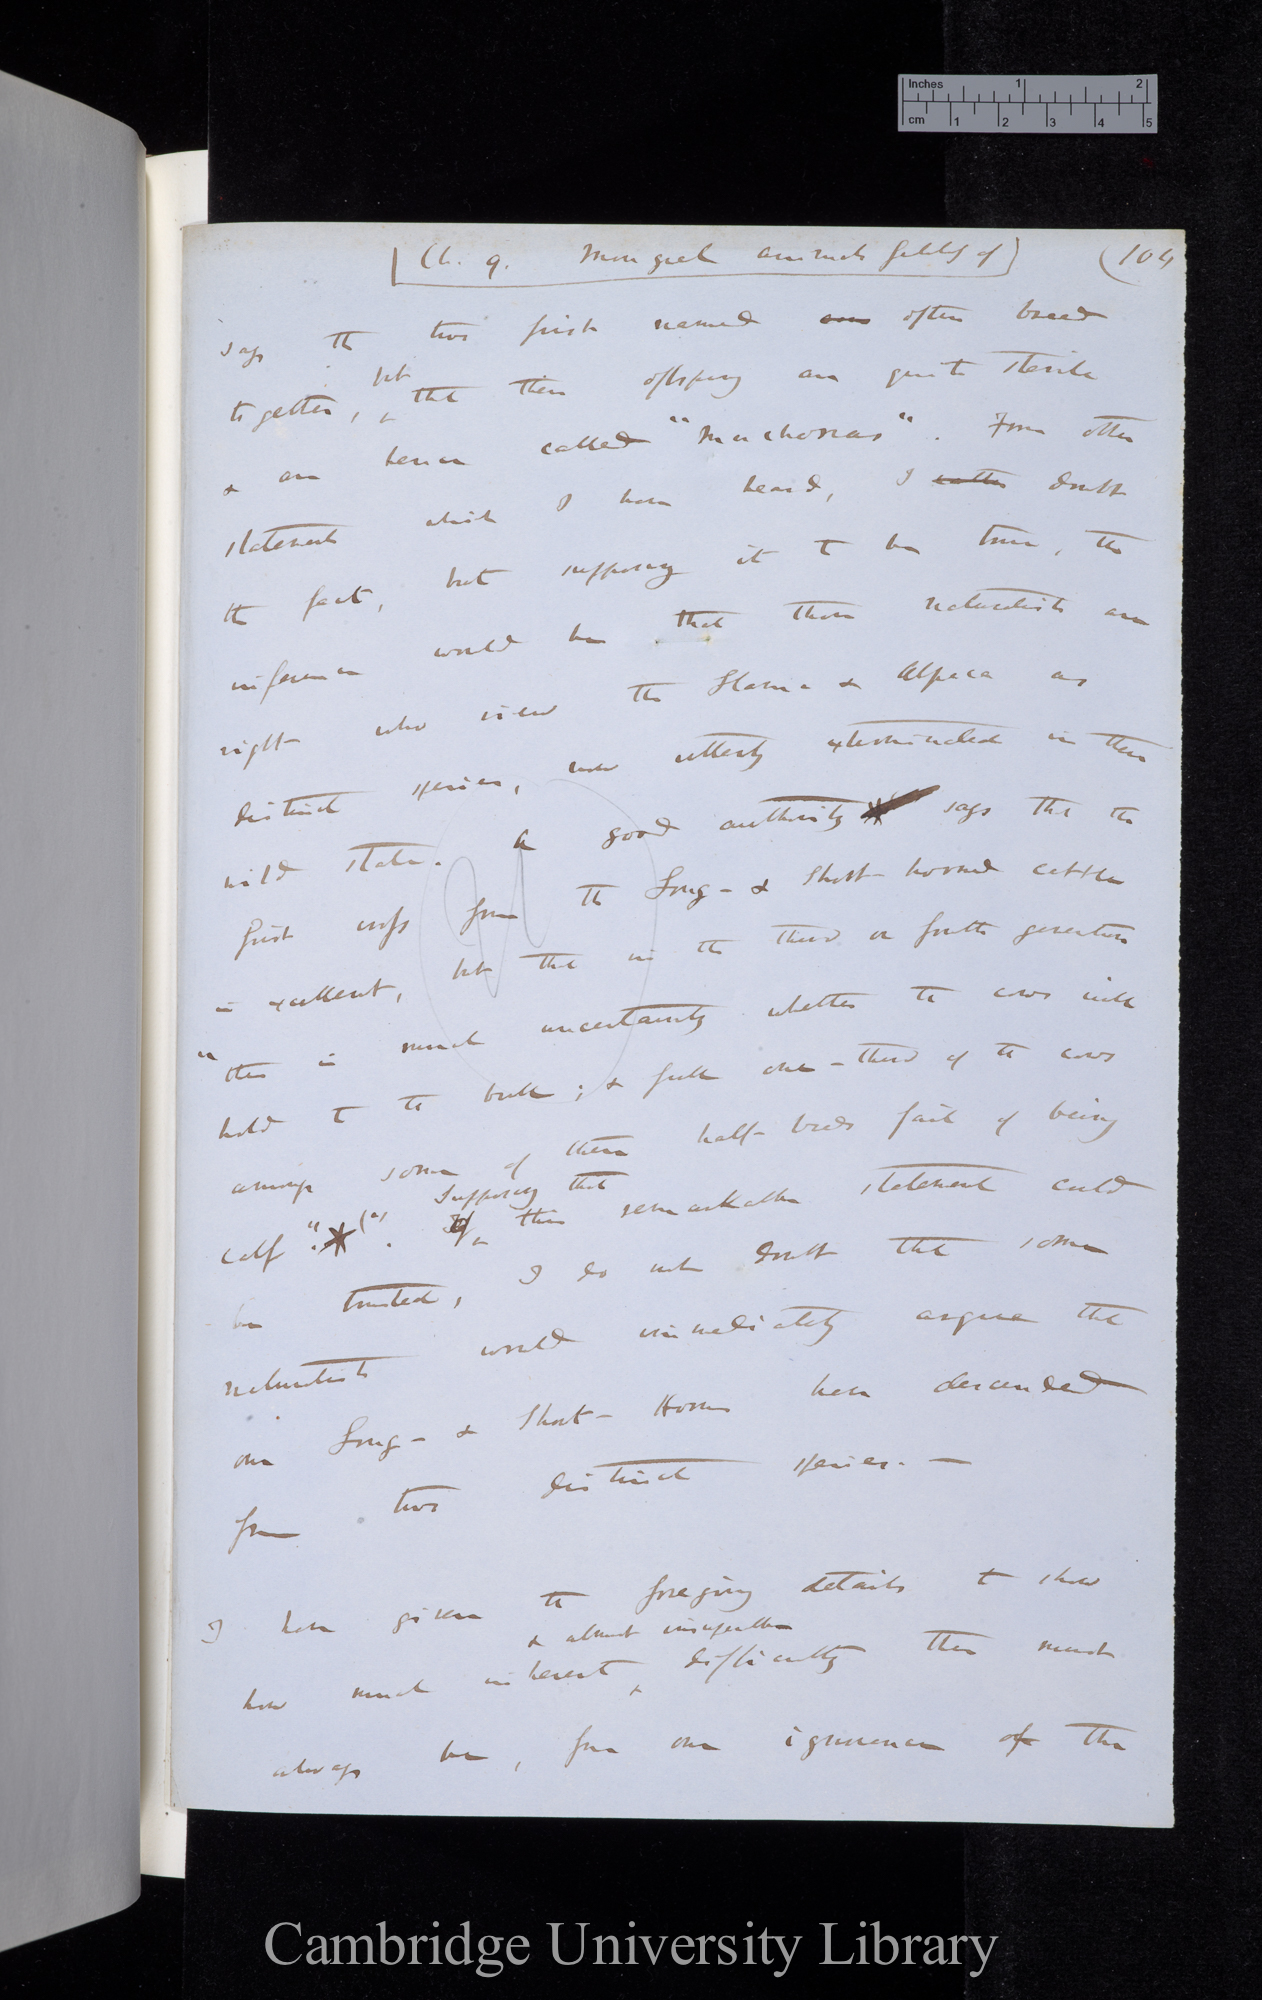 Inches 1 2
cm 1 2 3 4 5
Ch. 9. Mongrel animals fertility of (104
says the two first named are often breed
together, but that their offspring are quite sterile
& are hence called "Machorras". From other
statements which I have heard, I rather doubt
the fact, but supposing it to be true, the
inference would be that those naturalists are
right who view the Llama & Alpaca as
distinct species, now utterly exterminated in their
wild state. A good authority says that the
first cross from the Long- & Short-horned cattle
is excellent, but that in the third or fourth generation
"there is much uncertainty whether the cows will
hold to the bull; & full one-third of the cows
among some of these half-breds fail of being
calf". (a) . If supposing that this remarkable statement could
be trusted, I do not doubt that some
naturalists would immediately argue that
our Long- & Short-Horns have descended
from two distinct species.—
I have given the foregoing details to show
how much inherent & almost insuperable difficulty there must
always be, from our ignorance of the
Cambridge University Library